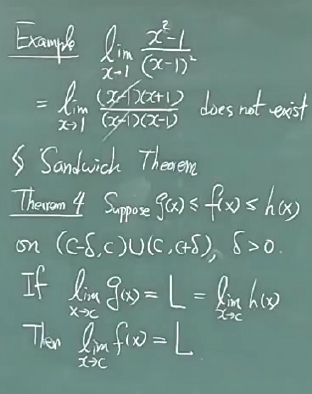 Example lim x→1 x²-1 / (x-1)²
= lim x→1 (x-1)(x+1) / (x-1)(x-1) does not exist
§ Sandwich Theorem
Theorem 4 Suppose g(x) ≤ f(x) ≤ h(x)
on (c-δ, c)∪(c, c+δ), δ>0.
If lim x→c g(x) = L = lim x→c h(x)
Then lim x→c f(x) = L.